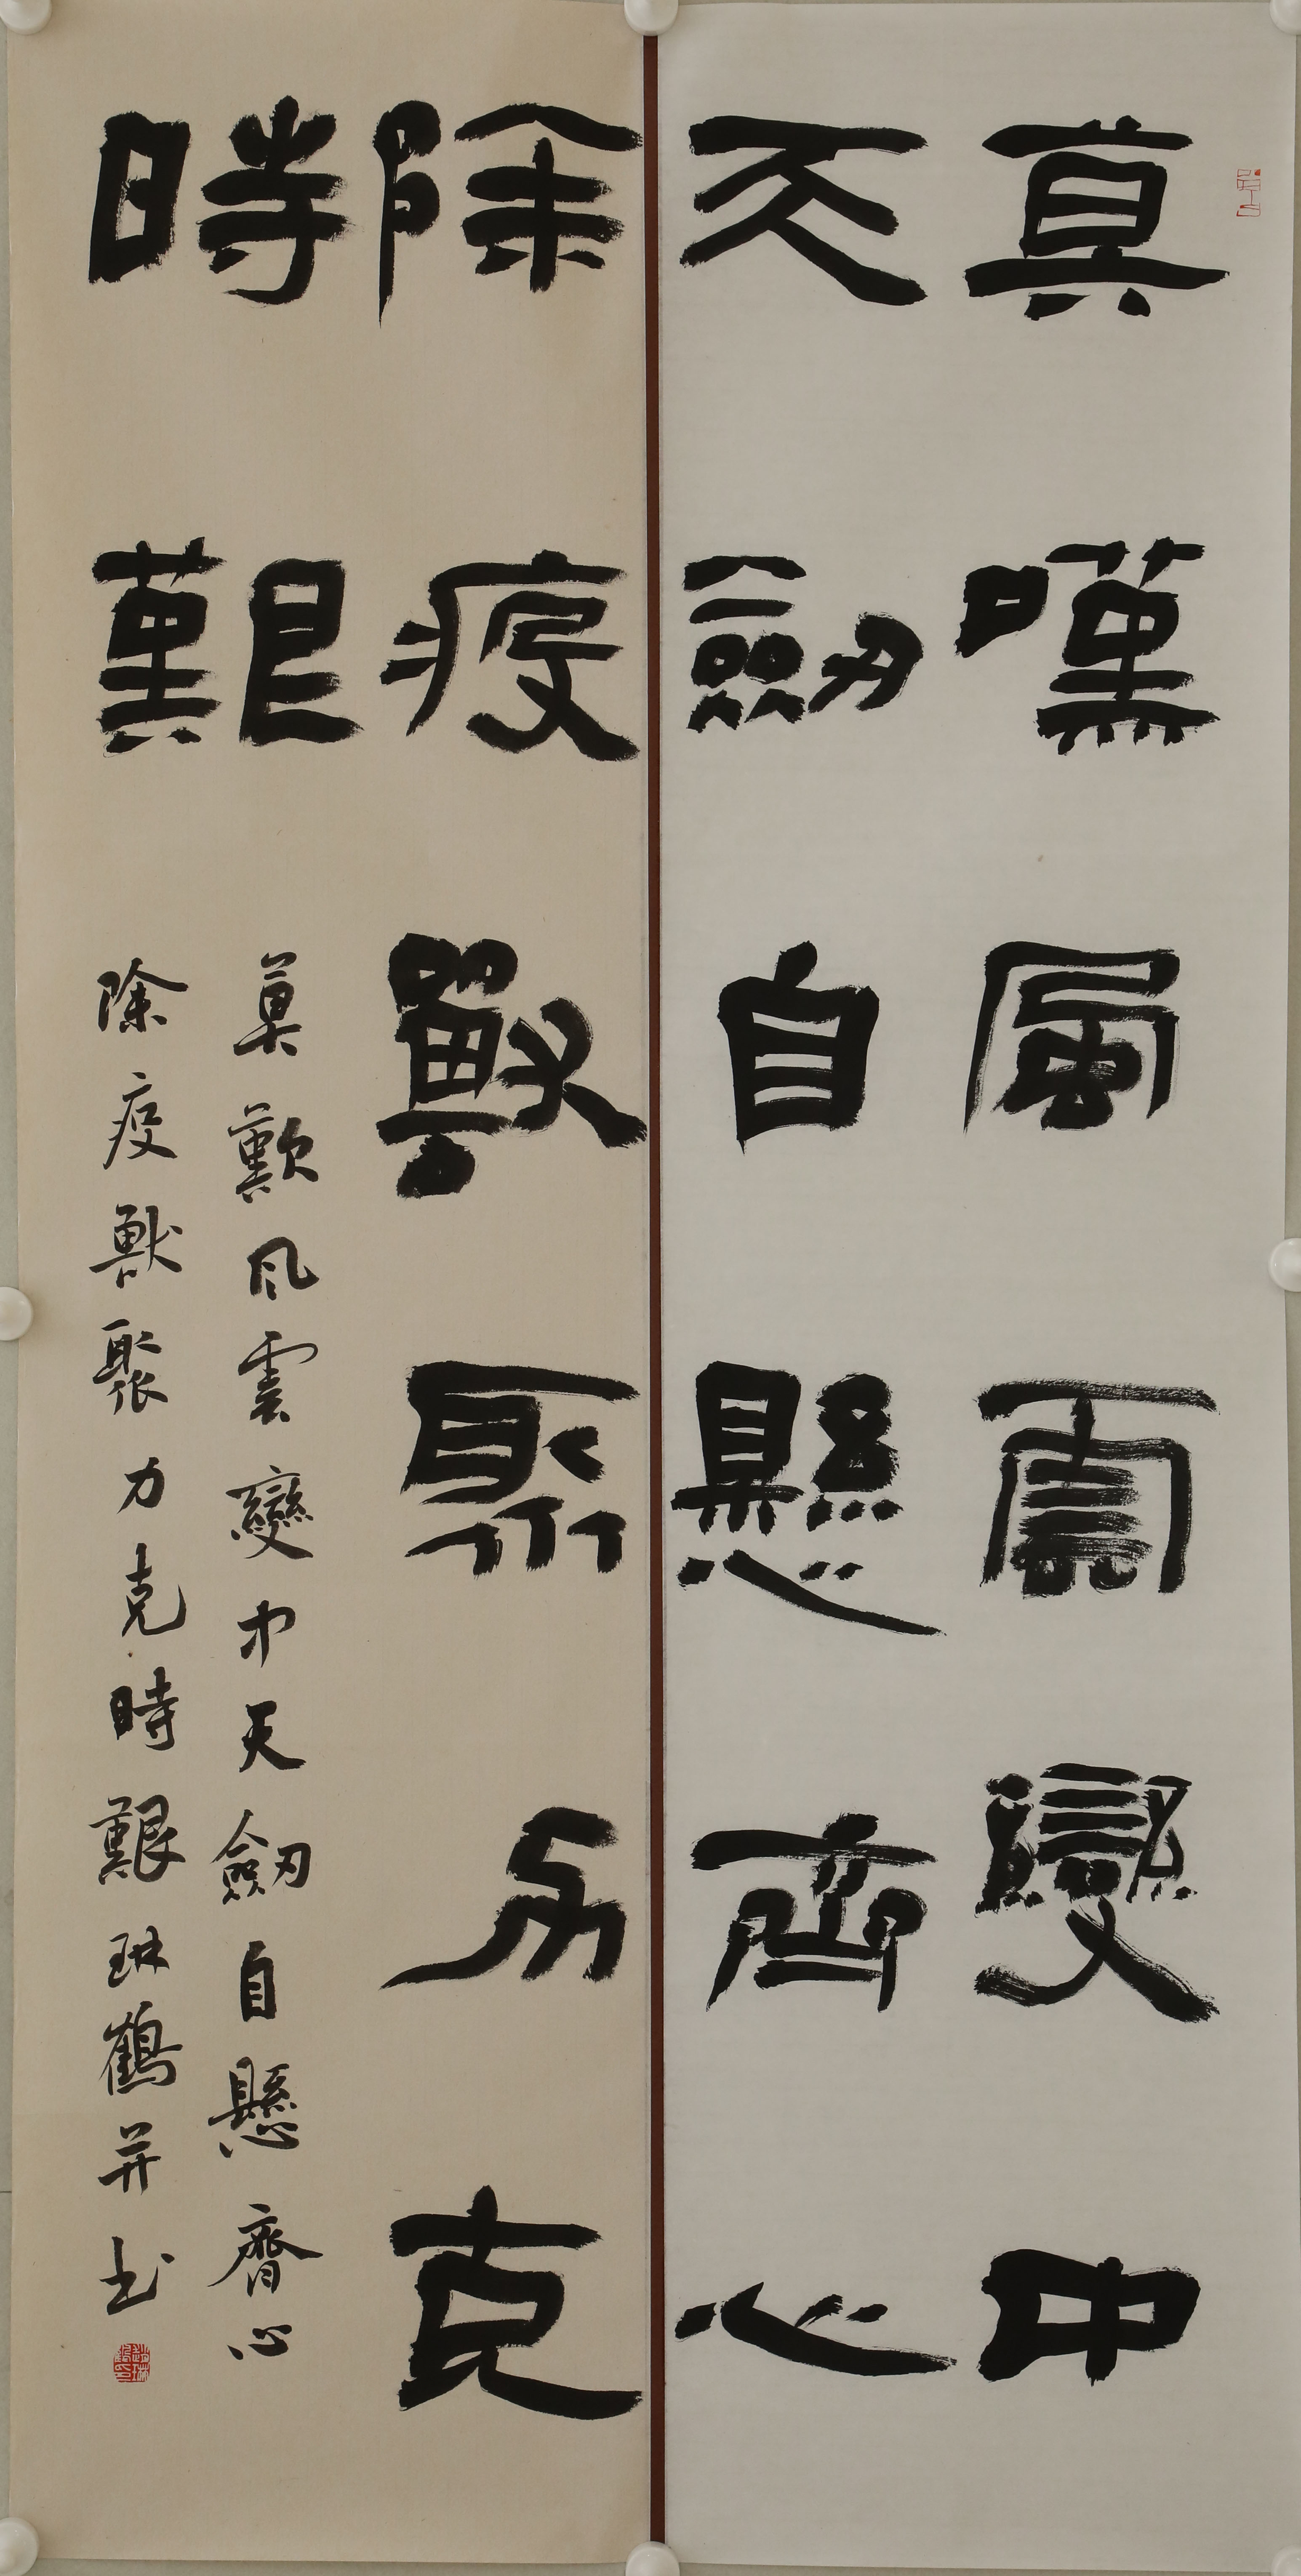 莫嘆風雲變中
天劒自懸齊心
除疫獸聚力克
時艱
莫歎风雲變中天劒自懸齊心
除疫獸聚力克時艱琳鶴并书